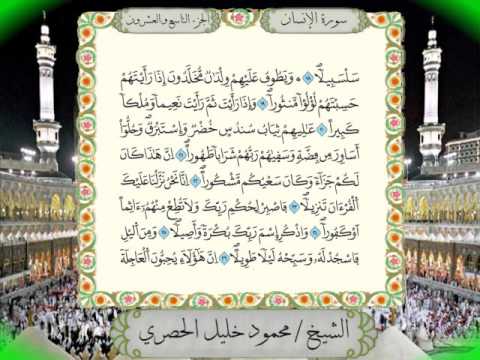 سورة الإنسان
الجزء التاسع والعشرون
سَلْسَبِيلاً وَيَطُوفُ عَلَيْهِمْ وِلْدَٰنٌ مُّخَلَّدُونَ إِذَا رَأَيْتَهُمْ
حَسِبْتَهُمْ لُؤْلُؤاً مَّنثُوراً وَإِذَا رَأَيْتَ ثَمَّ رَأَيْتَ نَعِيماً وَمُلْكاً
كَبِيراً عَٰلِيهِمْ ثِيَابُ سُندُسٍ خُضْرٌ وَإِسْتَبْرَقٌ وَحُلُّوٓاْ
أَسَاوِرَ مِن فِضَّةٍ وَسَقَيٰهُمْ رَبُّهُمْ شَرَاباً طَهُوراً إِنَّ هَٰذَا كَانَ
لَكُمْ جَزَآءً وَكَانَ سَعْيُكُم مَّشْكُوراً إِنَّا نَحْنُ نَزَّلْنَا عَلَيْكَ
اَلْقُرْءَانَ تَنزِيلاً فَاصْبِرْ لِحُكْمِ رَبِّكَ وَلَا تُطِعْ مِنْهُمُۥٓ ءَاثِماً
أَوْ كَفُوراً وَاذْكُرِ اِسْمَ رَبِّكَ بُكْرَةً وَأَصِيلاً وَمِنَ اَلَيْلِ
فَاسْجُدْ لَهُۥ وَسَبِّحْهُ لَيْلاً طَوِيلاً إِنَّ هَٰٓؤُلَآءِ يُحِبُّونَ اَلْعَاجِلَةَ
الشيخ / محمود خليل الحصري